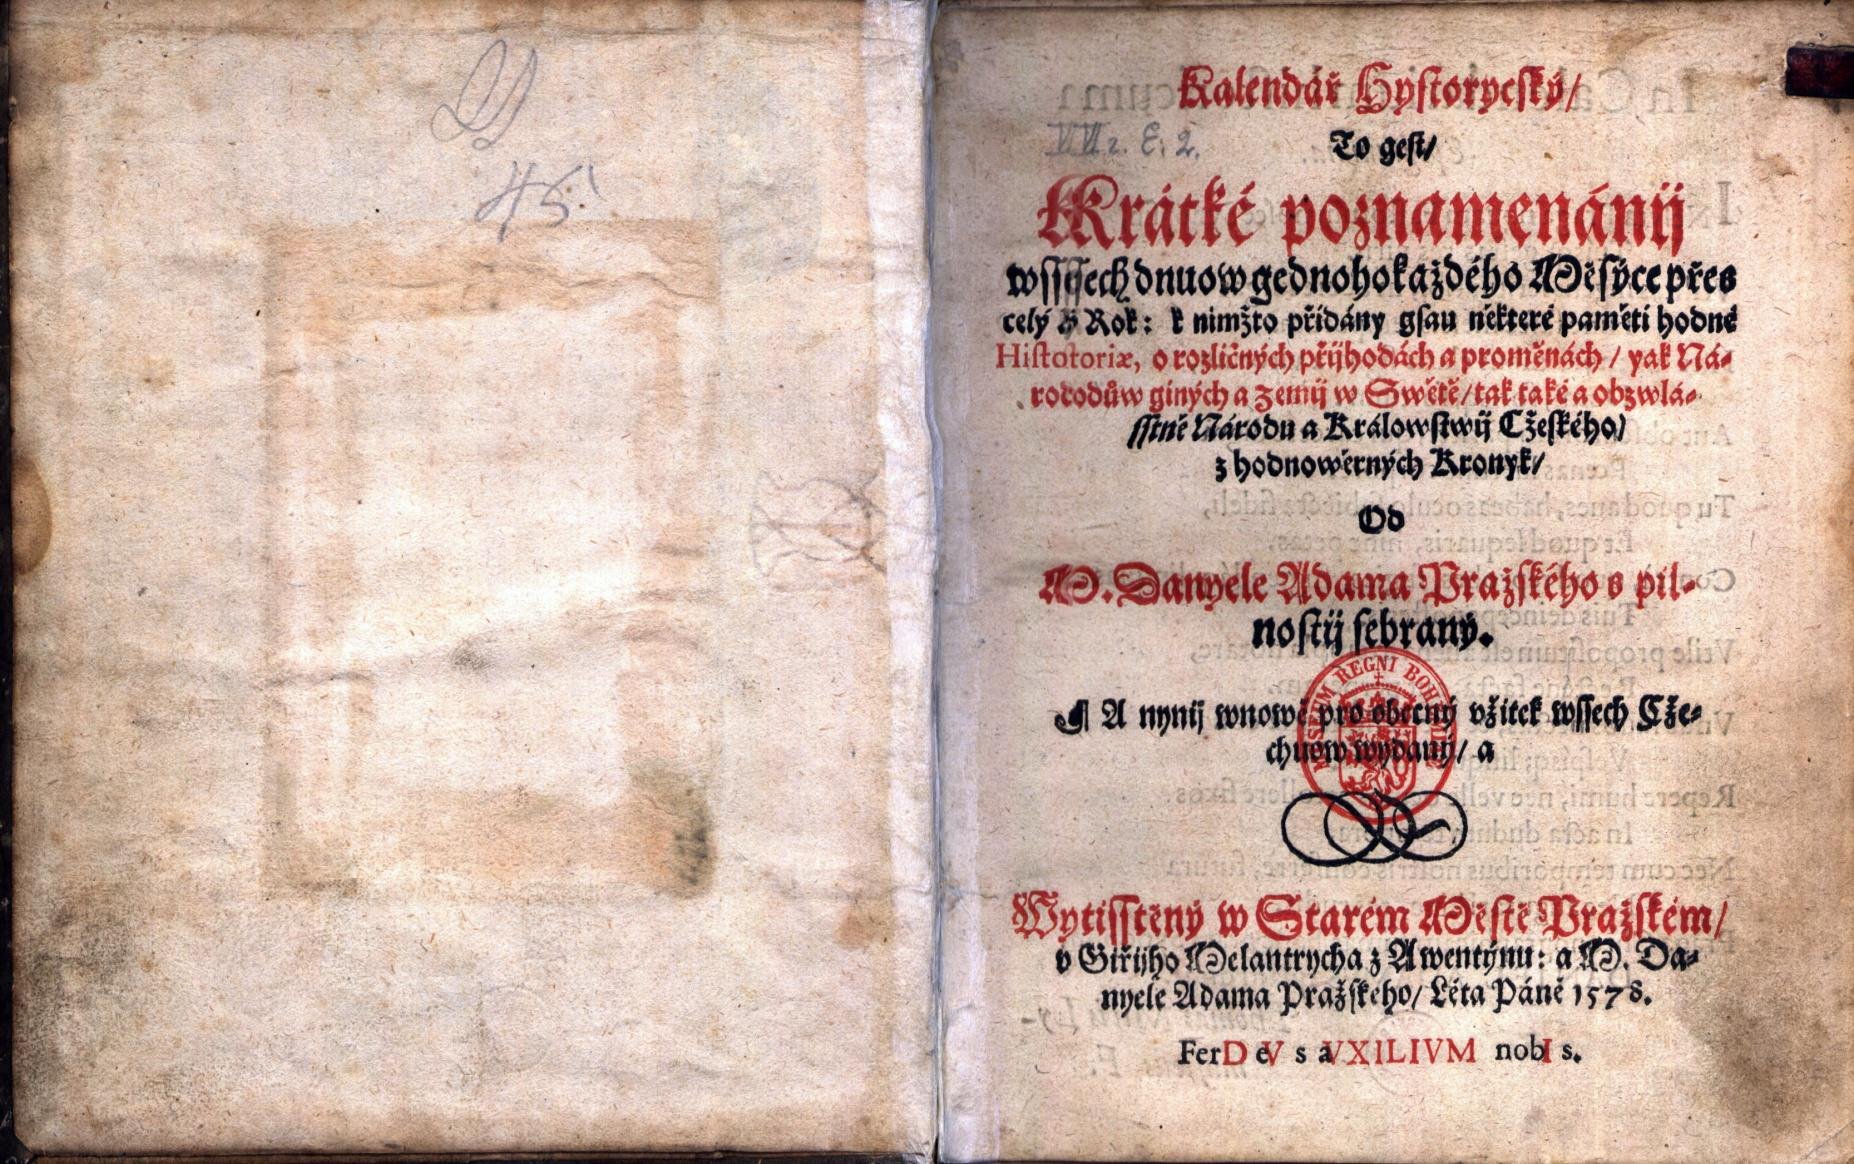 45
Kalendář Hystorycský/
VII. E. 2.
To gest/
Krátké poznamenánij
wssech dnuow gednohokaždého Měsýce přes
celý Rok: k nimžto přidány gsau některé paměti hodné
Histotoriæ, o rozličných přijhodách a proměnách / yak Ná-
rododůw giných a zemij w Swětě/ tak také a obzwlá-
sstně Národu a Králowstwij Cžeského/
z hodnowěrných Kronyk/
Od
M. Danyele Adama Pražského s pil-
nostij sebraný.
¶ A nynij wnowě pro obecný vžitek wssech Cže-
chuow wydaný/ a
REGNI
Wytisstěný w Starém Městě Pražském/
v Giřijho Melantrycha z Awentýnu: a M. Da-
nyele Adama Pražskeho/ Léta Páně 1578.
FerD eV s aVXILIVM nobI s.